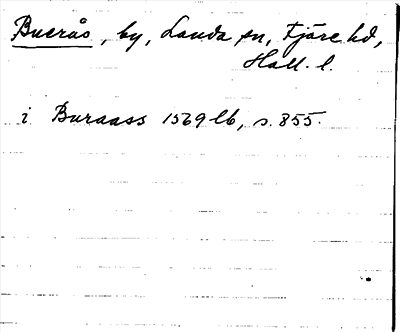 Buerås, by, Landa sn, Fjäre hd,
Hall. l.
i Buraass 1569 lb, s. 855.